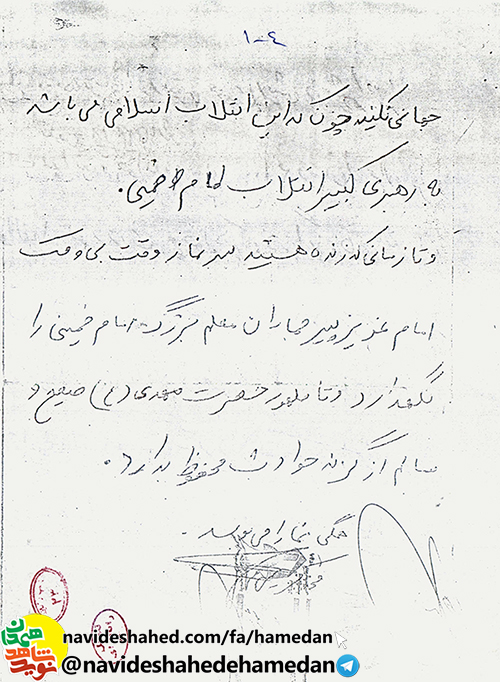 ۱-۴
حمایت کنید چون که این انقلاب اسلامی می باشد
به رهبری کبیر انقلاب امام خمینی.
و تا زمانی که زنده هستید سر نماز وقت بی وقت
امام عزیز پیر جماران معلم بزرگ امام خمینی را
نگهدارد و تا ظهور حضرت مهدی (ع) صحیح و
سالم از گزند حوادث محفوظ بدارد.
همگی شما را می بوسد.
نوید شاهد همدان
navideshahed.com/fa/hamedan
@navideshahedehamedan